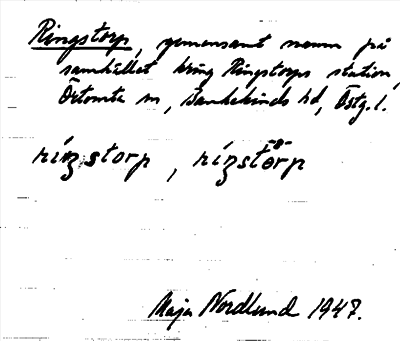 Ringstorp, gemensamt namn på
samhället kring Ringstorps station,
Örtomta sn, Bankekinds hd, Östg. l.
ríŋstorp, ríŋstörp
Maja Nordlund 1947.